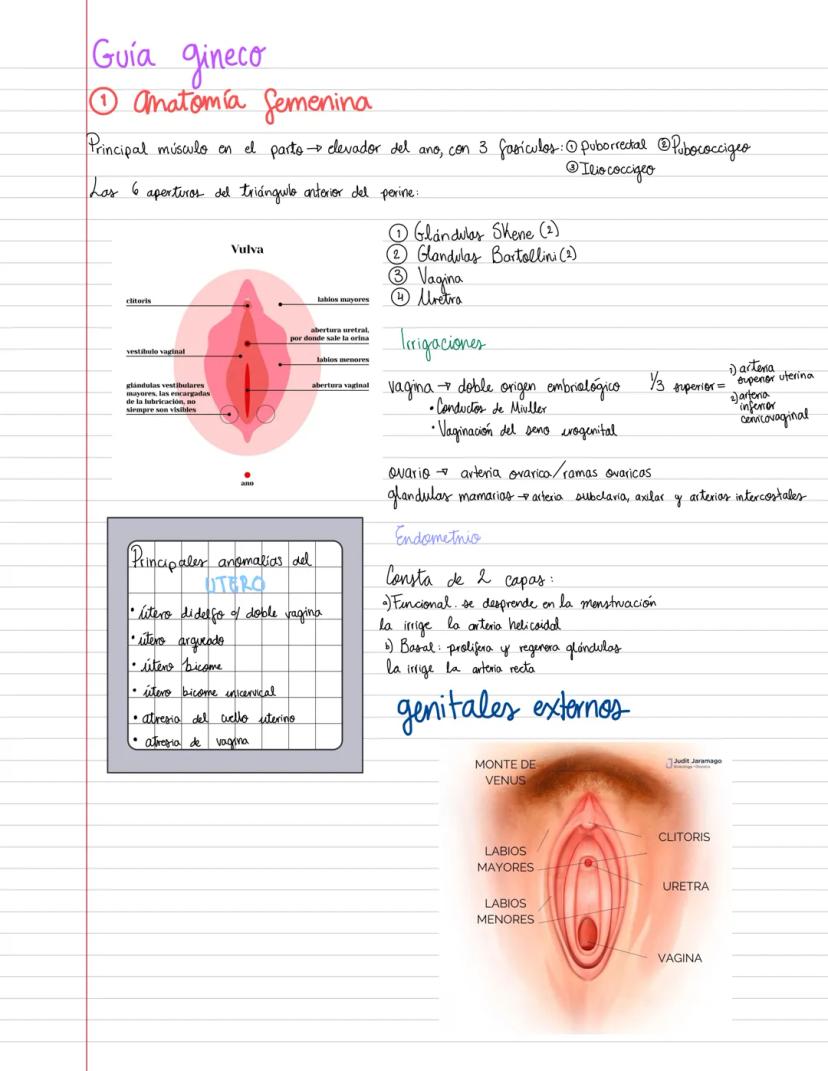 Guía gineco
① Anatomía femenina
Principal músculo en el parto → elevador del ano, con 3 fasículos: ① puborrectal ② Pubococcigeo
③ Iliococcigeo
Las 6 aperturas del triángulo anterior del perine:
① Glándulas Skene (2)
② Glandulas Bartollini (2)
③ Vagina
④ Uretra
Vulva
clítoris
labios mayores
abertura uretral,
por donde sale la orina
vestíbulo vaginal
labios menores
glándulas vestibulares
mayores, las encargadas
de la lubricación, no
siempre son visibles
abertura vaginal
ano
Irrigaciones
vagina → doble origen embriológico
• Conductos de Miuller
• Vaginación del seno urogenital
1/3 superior = 1) arteria
superior uterina
2) arteria
inferior
cervicovaginal
ovario → arteria ovarica/ramas ovaricas
glandulas mamarias → arteria subclavia, axilar y arterias intercostales
Principales anomalías del
UTERO
• útero didelfo c/ doble vagina
• útero arqueado
• útero bicorne
• útero bicorne unicervical
• atresia del cuello uterino
• atresia de vagina
Endometrio
Consta de 2 capas:
a) Funcional. se desprende en la menstruación
la irrige la arteria helicoidal
b) Basal: prolifera y regenera glándulas
la irrige la arteria recta
genitales externos
MONTE DE
VENUS
Judit Jaramago
CLITORIS
LABIOS
MAYORES
URETRA
LABIOS
MENORES
VAGINA